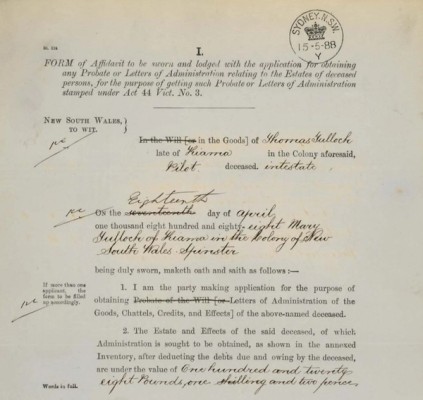 SYDNEY. N.S.W.
15-5-88
Y
I.
FORM of Affidavit to be sworn and lodged with the application for obtaining
any Probate or Letters of Administration relating to the Estates of deceased
persons, for the purpose of getting such Probate or Letters of Administration
stamped under Act 44 Vict. No. 3.
NEW SOUTH WALES,
TO WIT.
In the Will [or in the Goods] of Thomas Tulloch
late of Kiama in the Colony aforesaid,
Pilot deceased. intestate
Eighteenth
On the seventeenth day of April
one thousand eight hundred and eighty-eight Mary
Tulloch of Kiama in the Colony of New
South Wales Spinster
being duly sworn, maketh oath and saith as follows :—
If more than one
applicant, the
form to be filled
up accordingly.
1. I am the party making application for the purpose of
obtaining Probate of the Will [or Letters of Administration of the
Goods, Chattels, Credits, and Effects] of the above-named deceased.
2. The Estate and Effects of the said deceased, of which
Administration is sought to be obtained, as shown in the annexed
Inventory, after deducting the debts due and owing by the deceased,
are under the value of One hundred and twenty
Words in full.
eight Pounds, one shilling and two pence